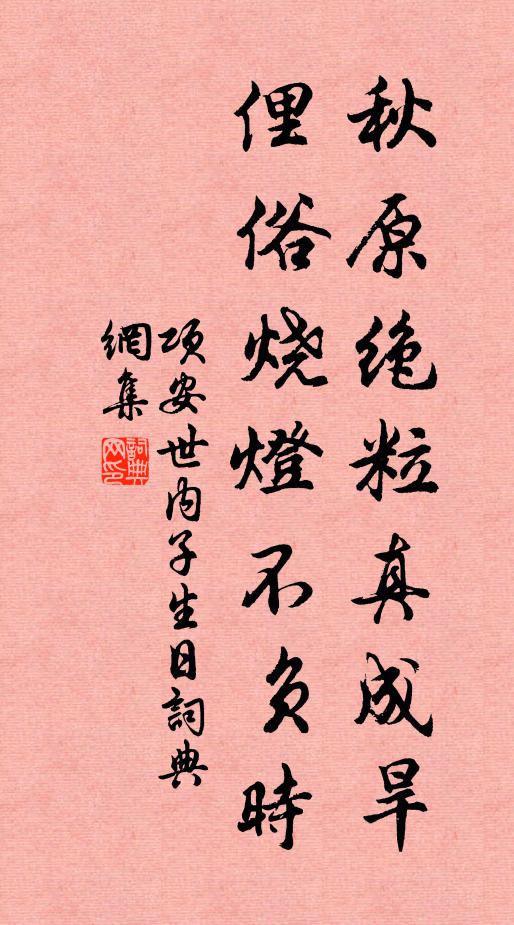 秋原绝粒真成旱
俚俗烧燈不负時
项安世内子生日詞典
網集
詞典
网印